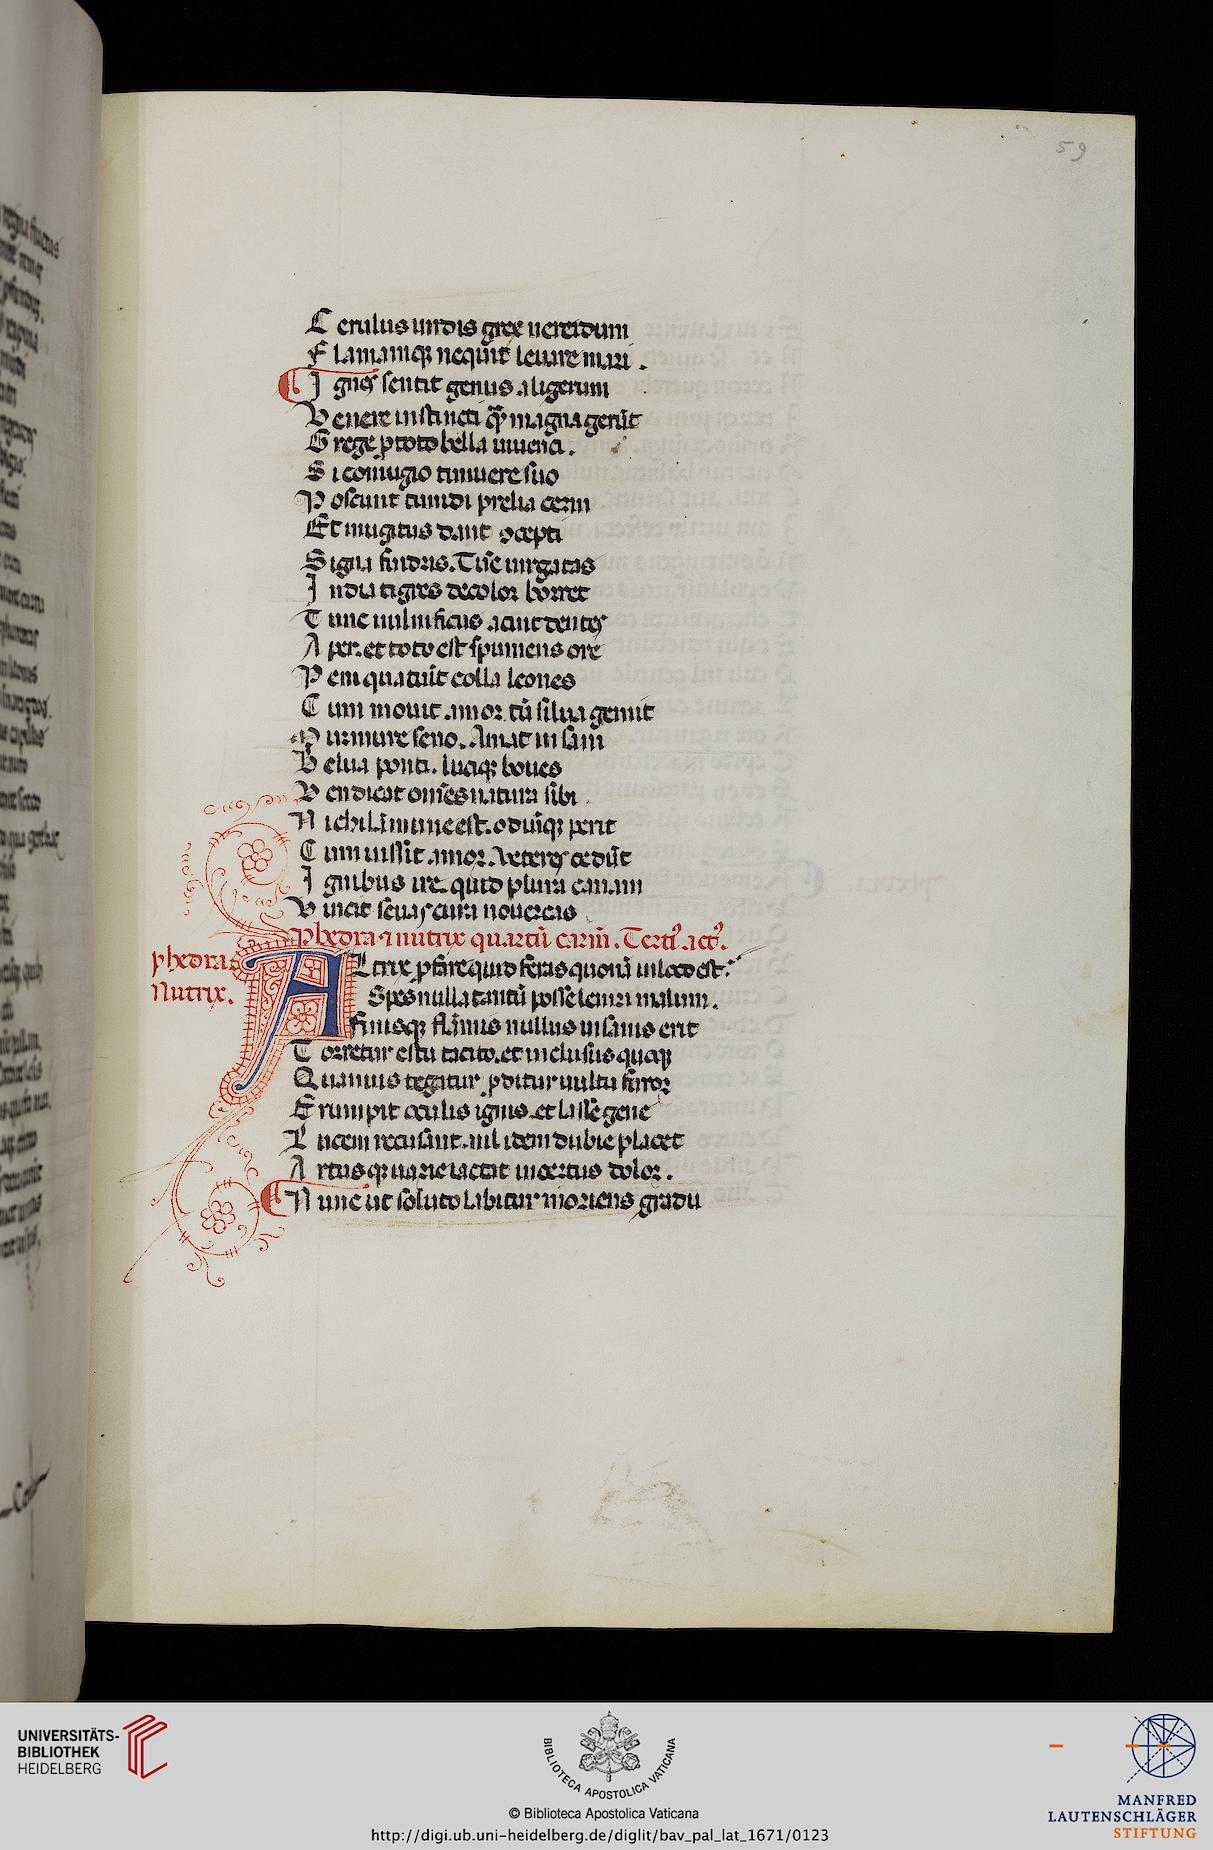 59
Cerulus undis grex nereidum
Flamamq; nequit levare mari.
Ignes sentit genus aligerum
Venere instincti q̃ magna gerũt
Grege ꝓ toto bella iuvenci.
Si coniugio timuere suo
Poscunt timidi prelia cervi
Et mugitus dant ꝯcepti
Signa furoris. Tũc virgatas
India tigres decolor horret
Tunc vulnificus acuit dentes
Aper. et toto est spumeus ore
Peni quatiũt colla leones
Cum movit amor. tũ silva gemit
Murmure sevo. Amat insani
Belua ponti. luciq; boves
Vendicat om̃es natura sibi.
Nichil ĩmune est. odiũq; perit
Cum iussit amor. Veteres cedũt
Ignibus ire. quid plura canam
Vincit sevas cura novercas
Phedra ⁊ nutrix quartũ carm̃. Terti⁹ act⁹.
phedra
Nutrix.
ALtrix ꝓfare quid feras quonã in loco est.
Spes nulla tantũ posse leniri malum.
Finisq; flãmis nullus insanis erit
Torretur estu tacito. et inclusus quoq;
Quamvis tegatur ꝓditur vultu furor
Erumpit oculis ignis. et lasse gene
Lucem recusant. nil idem dubie placet
Artusq; varie iactat incertus dolor.
Nunc ut soluto labitur moriens gradu
UNIVERSITÄTS-
BIBLIOTHEK
HEIDELBERG
BIBLIOTECA APOSTOLICA VATICANA
© Biblioteca Apostolica Vaticana
http://digi.ub.uni-heidelberg.de/diglit/bav_pal_lat_1671/0123
MANFRED
LAUTENSCHLÄGER
STIFTUNG